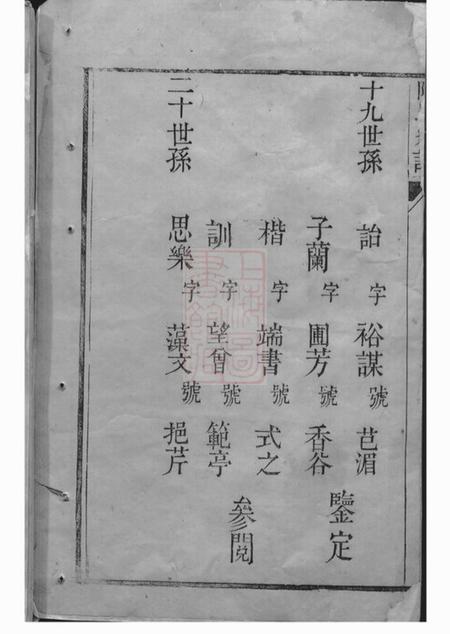 十九世孫
詒 字 裕謀 號 芑湄
子蘭 字 圃芳 號 香谷
鑒定
楷 字 端書 號 式之
訓 字 望曾 號 範亭
參閱
二十世孫
思樂 字 藻文 號 挹芹
上海圖書館藏